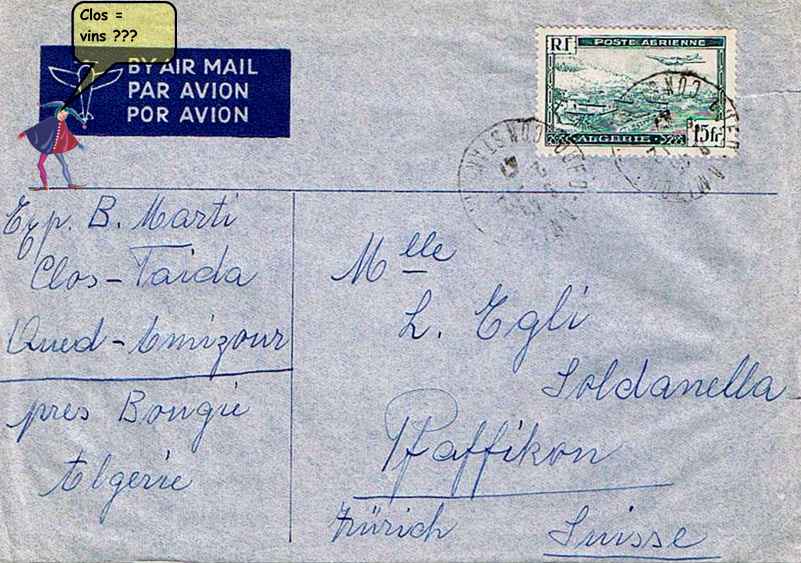 Clos =
vins ???
BY AIR MAIL
PAR AVION
POR AVION
RF
POSTE AERIENNE
ALGERIE
15fr
Exp. B. Marti
Clos-Taida
Oued-Amizour
près Bougie
Algerie
Mlle
L. Egli
Soldanella
Pfäffikon
Zürich
Suisse